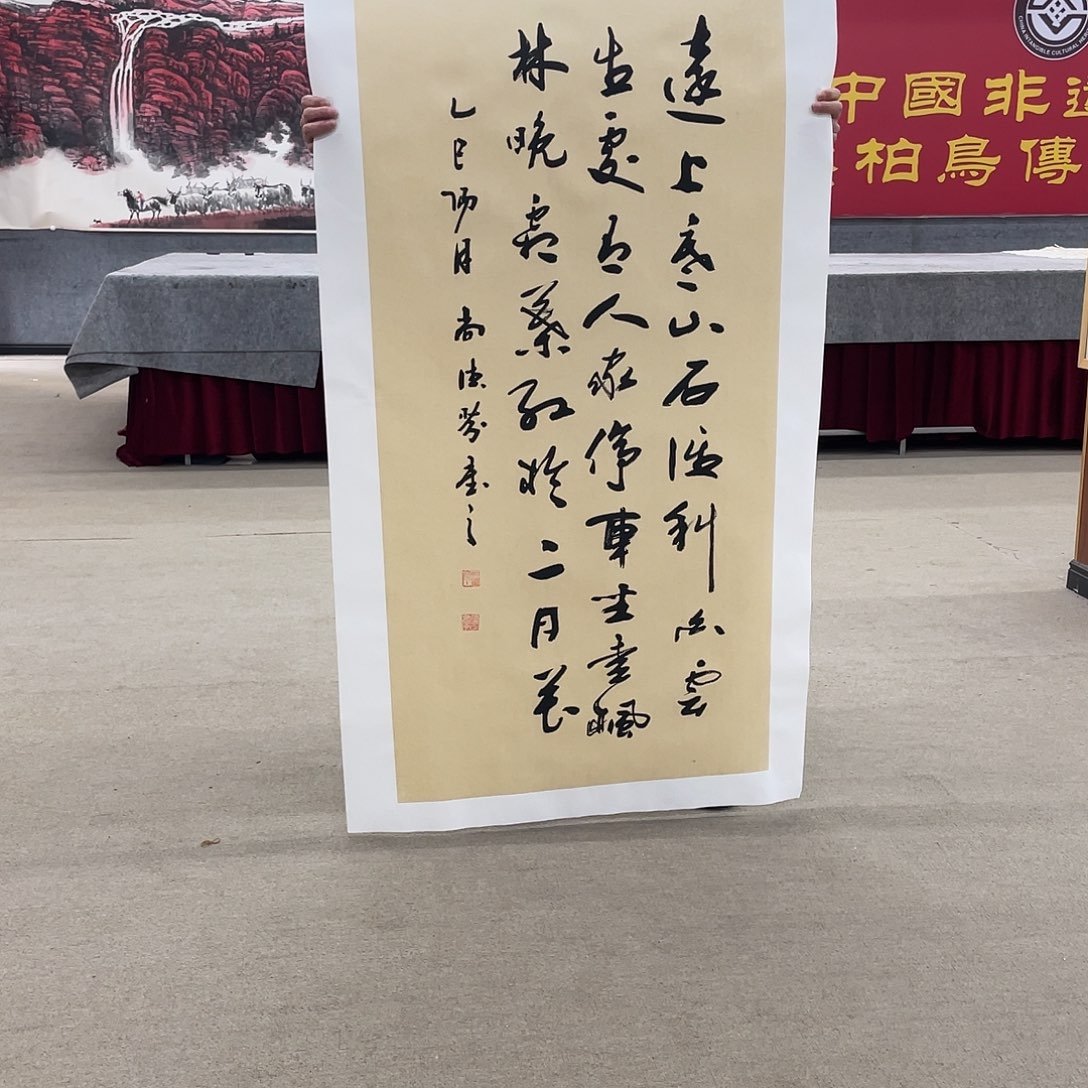 中國非
柏鳥傳
CHINA INTANGIBLE CULTURAL
遠上寒山石徑斜白雲
生處有人家停車坐愛楓
林晚霜葉紅於二月花
乙巳陽月 尚德 書之